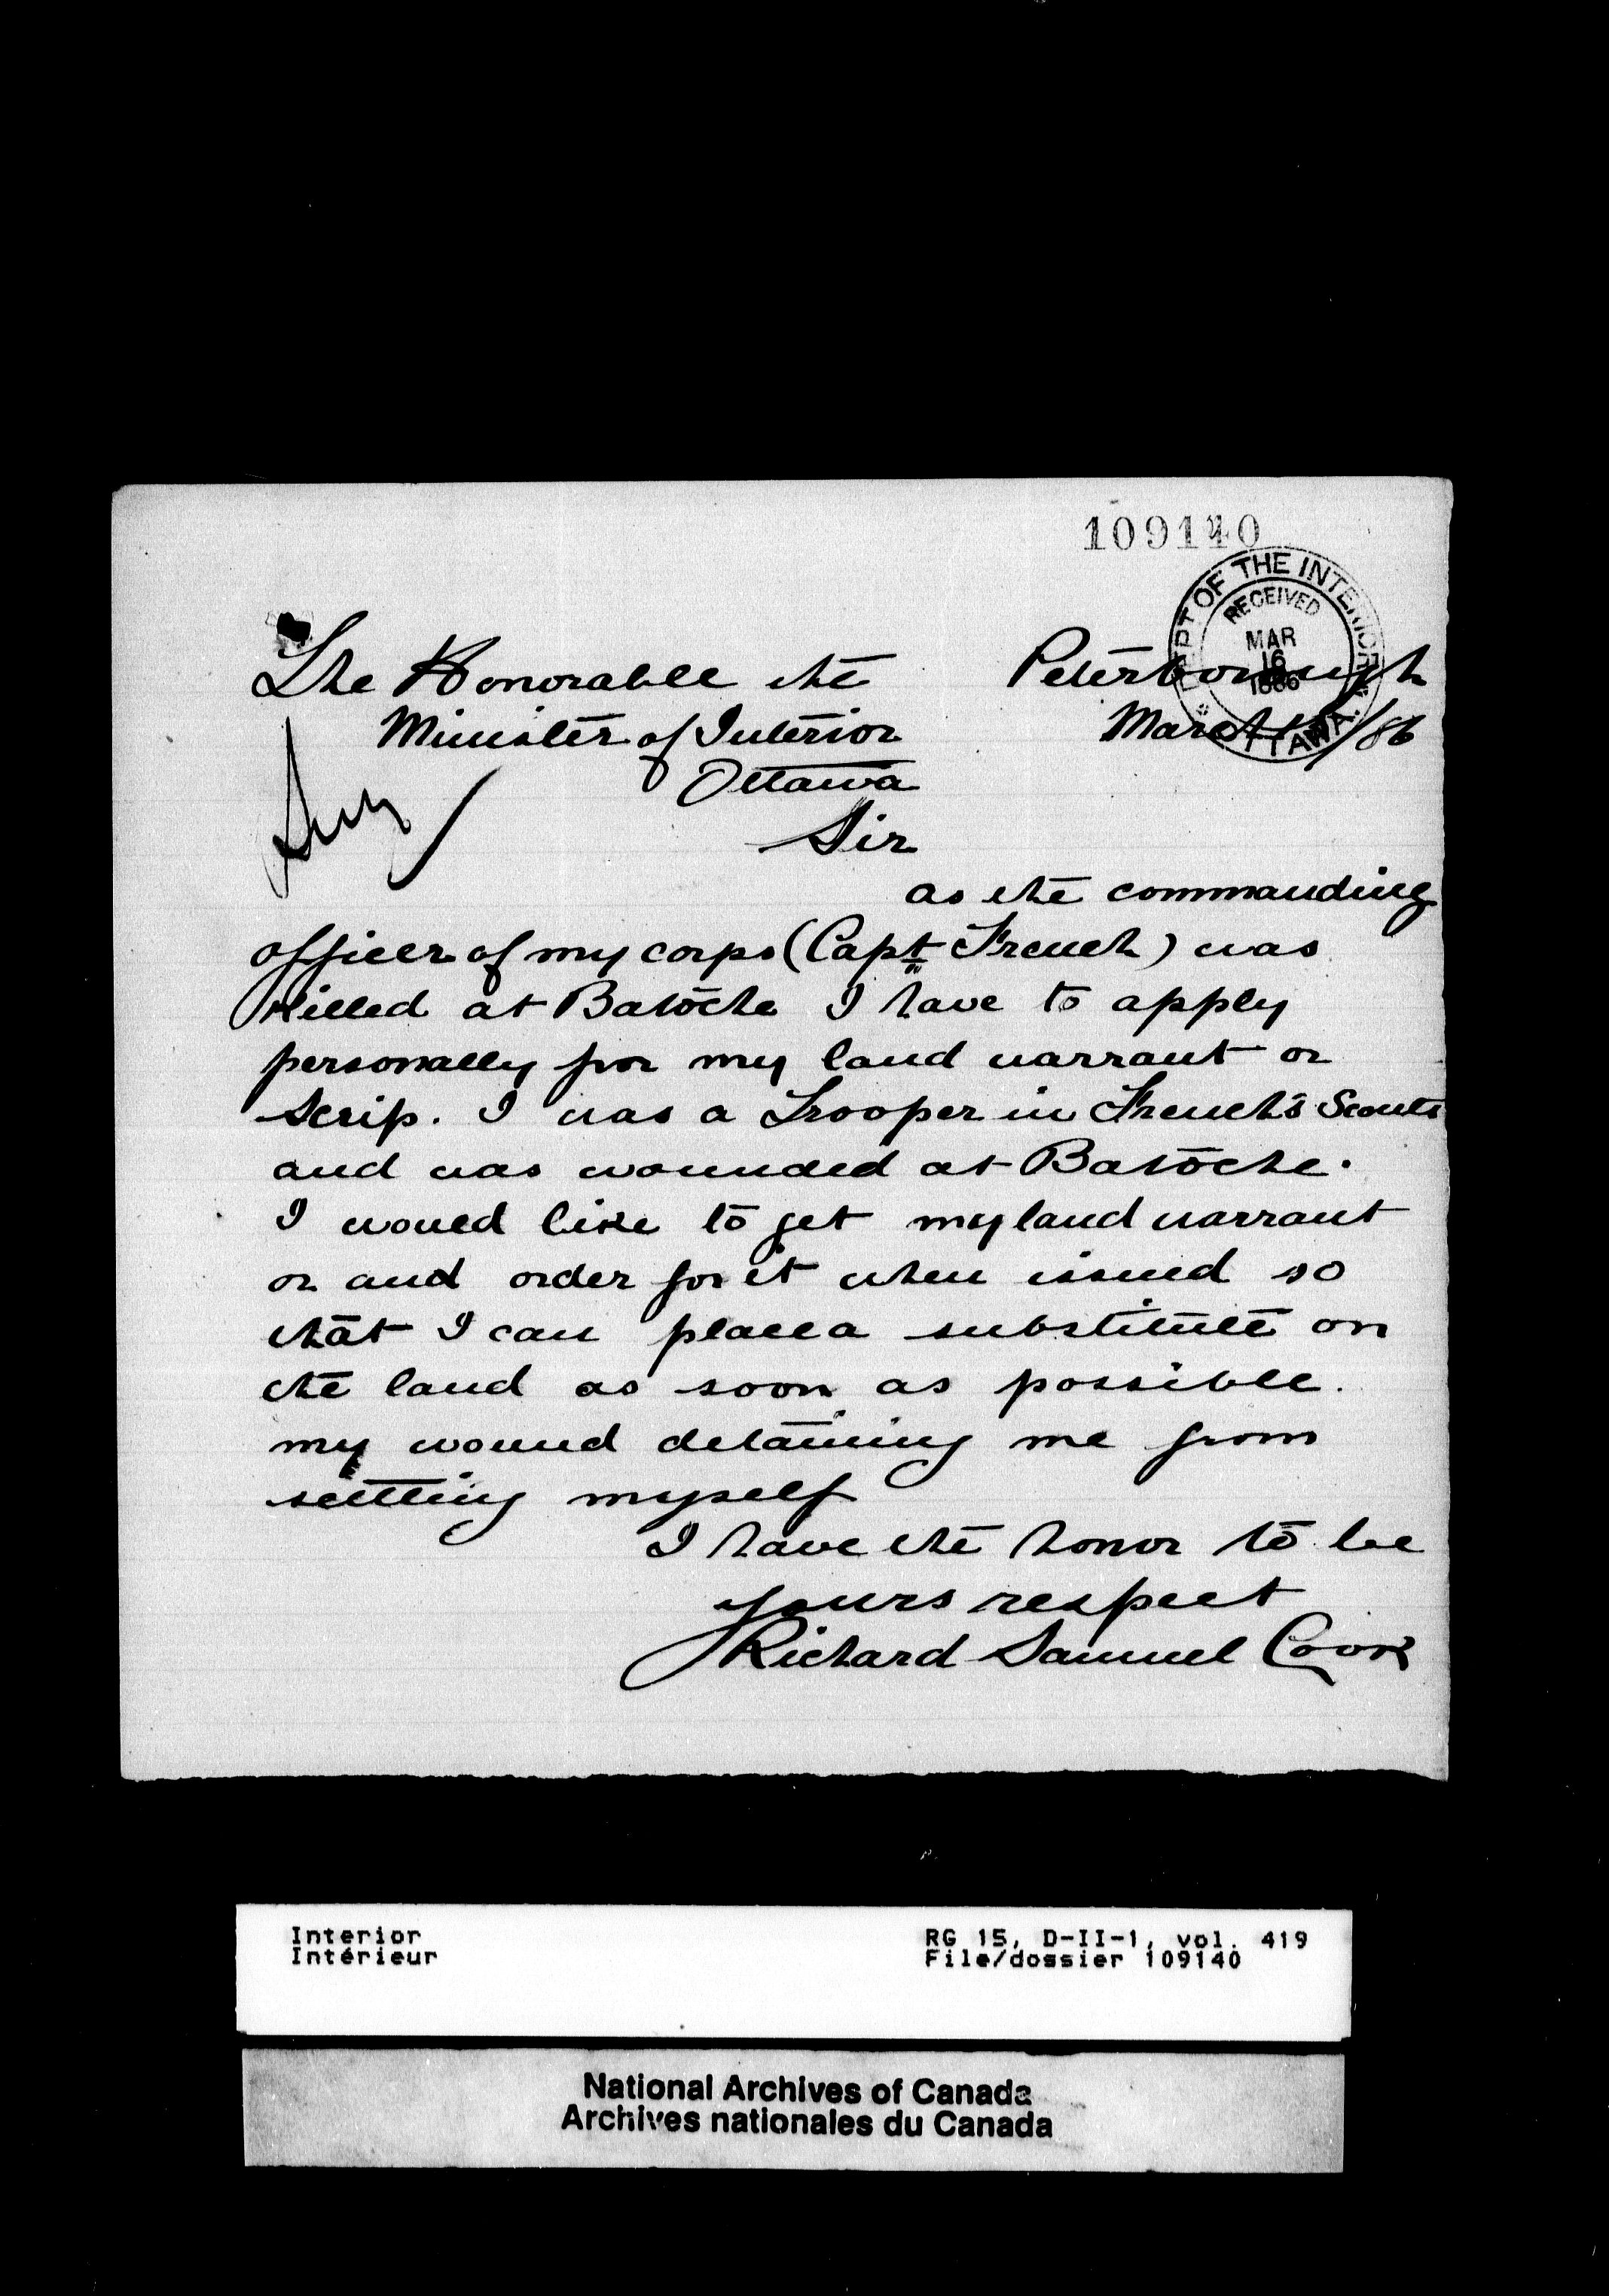 109140
DEPT OF THE INTERIOR
RECEIVED
MAR
16
1886
OTTAWA.
The Honorable the
Peterborough
Minister of Interior
March /86
Ottawa
Sir
as the commanding
officer of my corps (Capt French) was
killed at Batoche I have to apply
personally for my land warrant or
scrip. I was a Trooper in French's Scouts
and was wounded at Batoche.
I would like to get my land warrant
or and order for it when issued so
that I can place a substitute on
the land as soon as possible.
my wound detaining me from
settling myself
I have the honor to be
yours respect
Richard Samuel Cook
Interior
Intérieur
RG 15, D-II-1, vol. 419
File/dossier 109140
National Archives of Canada
Archives nationales du Canada